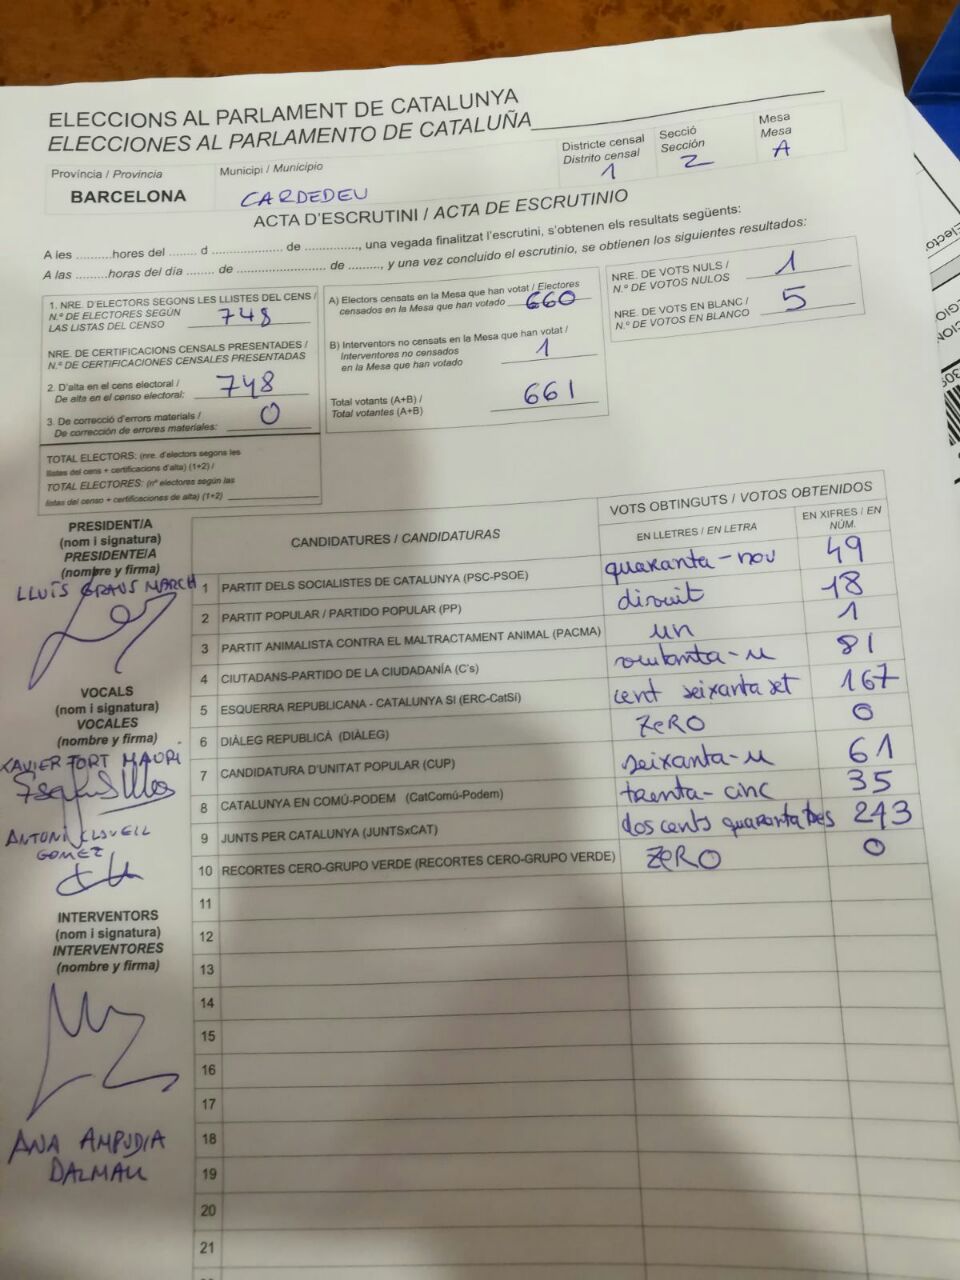 ELECCIONS AL PARLAMENT DE CATALUNYA
ELECCIONES AL PARLAMENTO DE CATALUÑA
Província / Provincia
BARCELONA
Municipi / Municipio
CARDEDEU
Districte censal
Distrito censal
1
Secció
Sección
2
Mesa
Mesa
A
ACTA D'ESCRUTINI / ACTA DE ESCRUTINIO
A les ..........hores del ....... d .................... de ..............., una vegada finalitzat l'escrutini, s'obtenen els resultats següents:
A las .........horas del día ....... de ......................... de ........, y una vez concluido el escrutinio, se obtienen los siguientes resultados:
1. NRE. D'ELECTORS SEGONS LES LLISTES DEL CENS /
N.º DE ELECTORES SEGÚN
LAS LISTAS DEL CENSO 748
NRE. DE CERTIFICACIONS CENSALS PRESENTADES /
N.º DE CERTIFICACIONES CENSALES PRESENTADAS
2. D'alta en el cens electoral /
De alta en el censo electoral: 748
3. De correcció d'errors materials /
De corrección de errores materiales: 0
TOTAL ELECTORS: (nre. d'electors segons les
llistes del cens + certificacions d'alta) (1+2) /
TOTAL ELECTORES: (nº electores según las
listas del censo + certificaciones de alta) (1+2)
A) Electors censats en la Mesa que han votat / Electores
censados en la Mesa que han votado 660
B) Interventors no censats en la Mesa que han votat /
Interventores no censados
en la Mesa que han votado 1
Total votants (A+B) /
Total votantes (A+B) 661
NRE. DE VOTS NULS /
N.º DE VOTOS NULOS 1
NRE. DE VOTS EN BLANC /
N.º DE VOTOS EN BLANCO 5
PRESIDENT/A
(nom i signatura)
PRESIDENTE/A
(nombre y firma)
LLUÍS GRAUS MARCH
VOCALS
(nom i signatura)
VOCALES
(nombre y firma)
XAVIER FORT MAURI
ANTONI CLAVELL
GOMEZ
INTERVENTORS
(nom i signatura)
INTERVENTORES
(nombre y firma)
ANA AMPUDIA
DALMAU
CANDIDATURES / CANDIDATURAS
VOTS OBTINGUTS / VOTOS OBTENIDOS
EN LLETRES / EN LETRA
EN XIFRES / EN NÚM.
1 PARTIT DELS SOCIALISTES DE CATALUNYA (PSC-PSOE) quaranta-nou 49
2 PARTIT POPULAR / PARTIDO POPULAR (PP) divuit 18
3 PARTIT ANIMALISTA CONTRA EL MALTRACTAMENT ANIMAL (PACMA) un 1
4 CIUTADANS-PARTIDO DE LA CIUDADANÍA (C's) vuitanta-u 81
5 ESQUERRA REPUBLICANA - CATALUNYA SI (ERC-CatSí) cent seixanta set 167
6 DIÀLEG REPUBLICÀ (DIÀLEG) ZERO 0
7 CANDIDATURA D'UNITAT POPULAR (CUP) seixanta-u 61
8 CATALUNYA EN COMÚ-PODEM (CatComú-Podem) trenta-cinc 35
9 JUNTS PER CATALUNYA (JUNTSxCAT) dos cents quaranta tres 243
10 RECORTES CERO-GRUPO VERDE (RECORTES CERO-GRUPO VERDE) ZERO 0
11
12
13
14
15
16
17
18
19
20
21